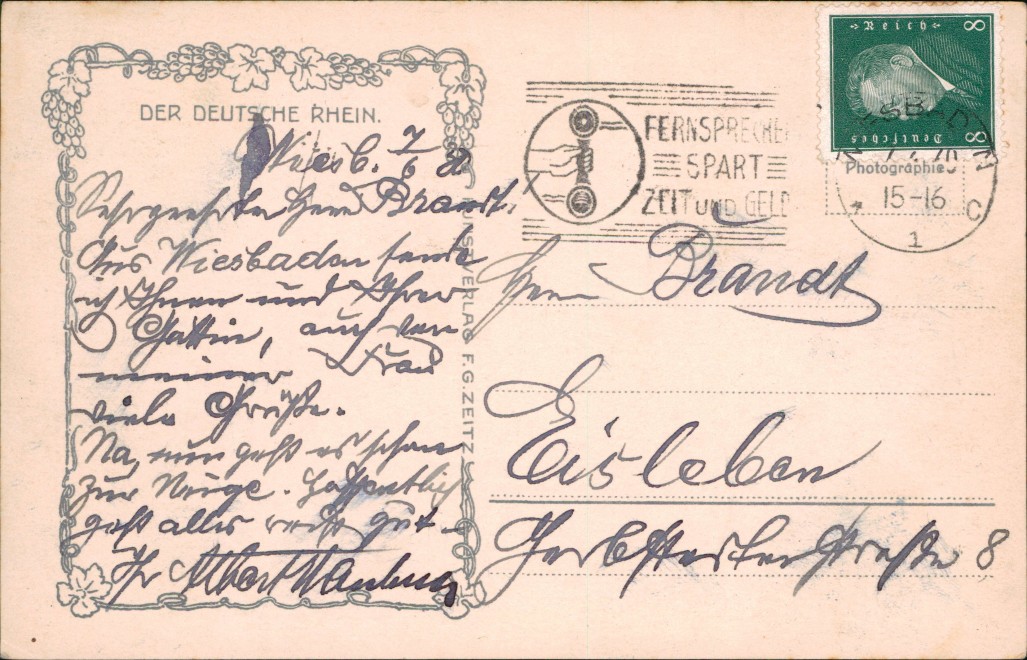 DER DEUTSCHE RHEIN.
Wiesb. 7/6
Sehrgeehrter Herr Brandt!
Aus Wiesbaden sende
ich Ihnen und Ihrer
Gattin, auch von
meiner Frau
viele Grüße.
Na, nun geht es schon
zur Neige. Hoffentlich
geht alles recht gut.
Ihr Albert
VERLAG F.G. ZEITZ
FERNSPRECHEN
SPART
ZEIT UND GELD
Deutsches
Reich
8
8
Photographie
15-16
C
1
Herrn Brandt
Eisleben
Gerbstedterstraße 8